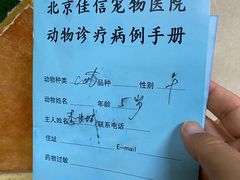 北京佳信宠物医院
动物诊疗病例手册
动物种类 品种 性别
动物姓名 年龄 5岁
主人姓名 联系电话
住址 E-mail
药物过敏